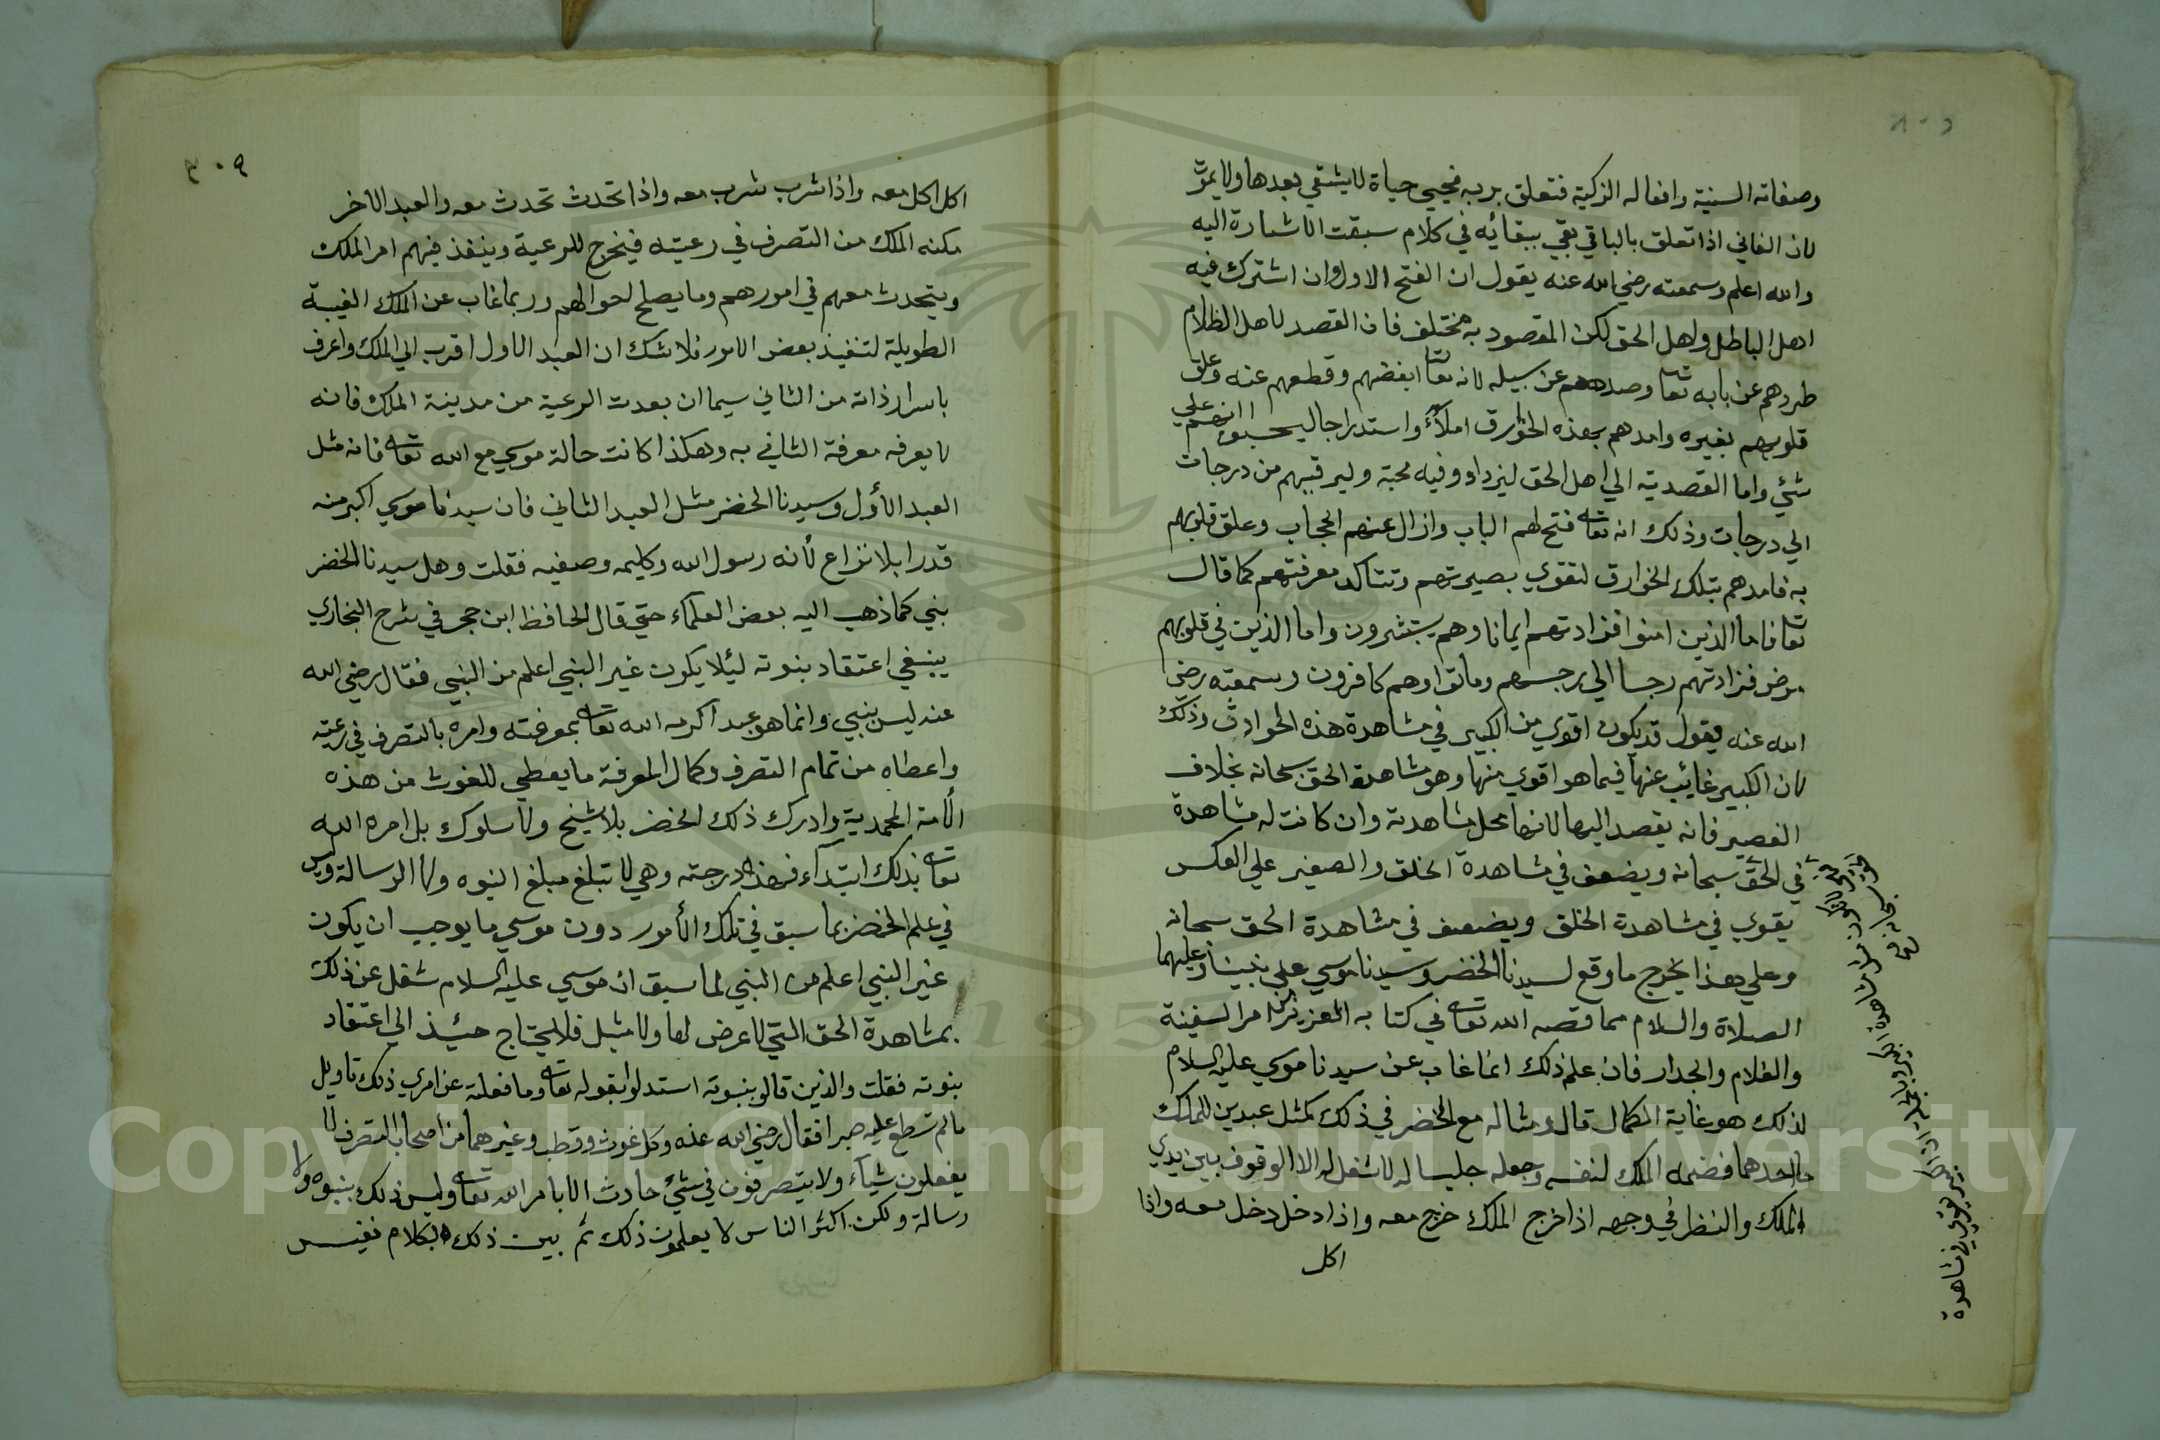 ٢٠٨
وصفاته السنية وافعاله الزكية فتعلق بربه فحيي حياة لا يشقي بعدها ولا يموت
لان الفاني اذا تعلق بالباقي بقي ببقائه في كلام سبقت الاشارة اليه
والله اعلم وسمعته رضي الله عنه يقول ان الفتح الاول وان اشترك فيه
اهل الباطل واهل الحق لكن المقصود به مختلف فان القصد لاهل الظلام
طردهم عن بابه تعا وصدهم عن سبيله لانه تعا ابغضهم وقطعهم عنه وعلق
قلوبهم بغيره وامدهم بهذه الخوارق املاء واستدراجا ليحسبوا انهم علي
شئ واما القصد به الي اهل الحق ليزدادوا فيه محبة وليرقيهم من درجات
الي درجات وذلك انه تعا فتح لهم الباب وازال عنهم الحجاب وعلق قلوبهم
به فامدهم بتلك الخوارق لتقوي بصيرتهم وتتاكد معرفتهم كما قال
تعا فاما الذين امنوا فزادتهم ايمانا وهم يستبشرون واما الذين في قلوبهم
مرض فزادتهم رجسا الي رجسهم وماتوا وهم كافرون وسمعته رضي
الله عنه يقول قد يكون اقوي من الكبير في مشاهدة هذه الحوادث وذلك
لان الكبير غائب عنها فيما هو اقوي منها وهو مشاهدة الحق سبحانه بخلاف
الصغير فانه يقصد اليها لانها محل مشاهدته وان كانت له مشاهدة
في الحق سبحانه ويضعف في مشاهدة الخلق والصغير علي العكس
يقوي في مشاهدة الخلق ويضعف في مشاهدة الحق سبحانه
وعلي هذا يخرج ما وقع لسيدنا الخضر وسيدنا موسي علي نبينا وعليهما
الصلاة والسلام مما قصه الله تعا في كتابه العزيز من امر السفينة
والغلام والجدار فان علم ذلك انما غاب عن سيدنا موسي عليه السلام
لذلك هو غاية الكمال قال ومثاله مع الخضر في ذلك كمثل عبدين للملك
احدهما فضمه الملك لنفسه وجعله جليسا له لا شغل له الا الوقوف بين يدي
الملك والنظر في وجهه اذا خرج الملك خرج معه واذا دخل دخل معه واذا
اكل
٣٠٩
اكل اكل معه واذا شرب شرب معه واذا تحدث تحدث معه والعبد الآخر
مكنه الملك من التصرف في رعيته فيخرج للرعية وينفذ فيهم امر الملك
ويتحدث معهم في امورهم وما يصلح لحوالهم وربما غاب عن الملك الغيبة
الطويلة لتنفيذ بعض الامور فلا شك ان العبد الاول اقرب الي الملك واعرف
باسرار ذاته من الثاني سيما ان بعدت الرعية من مدينة الملك فانه
لا يعرفه معرفة الثاني به وهكذا كانت حالة موسي مع الله تعا فانه مثل
العبد الأول وسيدنا الخضر مثل العبد الثاني فان سيدنا موسي اكبر منه
قدرا بلا نزاع لأنه رسول الله وكليمه وصفيه فقلت وهل سيدنا الخضر
نبي كما ذهب اليه بعض العلماء حتي قال الحافظ ابن حجر في شرح البخاري
ينبغي اعتقاد نبوته ليلا يكون غير النبي اعلم من النبي فقال رضي الله
عنه ليس بنبي وانما هو عبد اكرمه الله تعا بمعرفته وامره بالتصرف في رعيته
واعطاه من تمام التصرف وكمال المعرفة ما يعطي للغوث من هذه
الأمة المحمدية وادرك ذلك الخضر بلا شيخ ولا سلوك بل امره الله
تعا بذلك ابتداء فهذه درجته وهي لا تبلغ مبلغ النبوه ولا الرسالة وليس
في علم الخضر بما سبق في تلك الأمور دون موسي ما يوجب ان يكون
غير النبي اعلم من النبي لما سبق ان موسي عليه السلام شغل عن ذلك
بمشاهدة الحق التي لا عرض لها ولا مثيل فلا يحتاج حينئذ الي اعتقاد
نبوته فقلت والذين قالوا بنبوته استدلوا بقوله تعا وما فعلته عن امري ذلك تاويل
ما لم تسطع عليه صبرا فقال رضي الله عنه وكل غوث وقطب وغيرهما من اصحاب التصرف لا
يفعلون شياء ولا يتصرفون في شئ حادث الا بامر الله تعا وليس ذلك بنبوه ولا
رسالة ولكن اكثر الناس لا يعلمون ذلك ثم بين ذلك بكلام نفيس
Copyright © King Saud University
1957